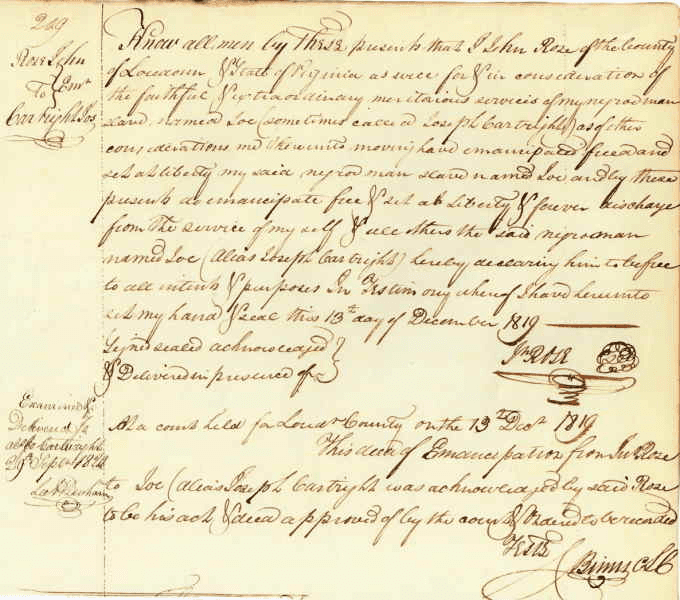 249
Rose John
To } Emn
Cartright Jos
Know all men by These presents that I John Rose of the County
of Loudoun & State of Virginia as well for & in consideration of
the faithful & extraordinary meritorious services of my negro man
slave named Joe (sometimes called Joseph Cartright) as of other
considerations me thereunto moving have emancipated freed and
set at liberty my said negro man slave named Joe and by these
presents do emancipate free & set at Liberty & forever discharge
from the service of my self & all others the said negro man
named Joe (alias Joseph Cartright) hereby declaring him to be free
to all intents & purposes In Testimony whereof I have hereunto
set my hand & seal this 13th day of December 1819
Signed sealed acknowledged }
& Delivered in presence of }
Jno Rose
Examined &
Delivered
Cartright
Sept 1822
At a court held for Loudn County on the 13th Decr 1819
This deed of Emancipation from Jno Rose
to Joe (alias Joseph Cartright was acknowledged by said Rose
to be his act & deed approved of by the court & Ordered to be recorded
Teste
Binns CLC